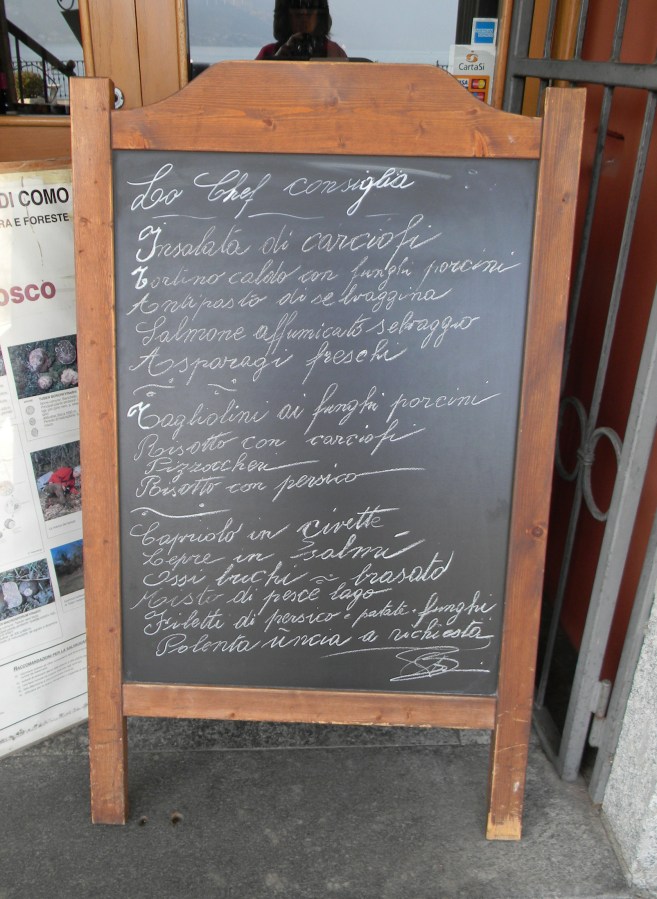 CartaSi
VISA
DI COMO
RA E FORESTE
OSCO
Lo Chef consiglia
Insalata di carciofi
Tortino caldo con funghi porcini
Antipasto di selvaggina
Salmone affumicato selvaggio
Asparagi freschi
Tagliolini ai funghi porcini
Risotto con carciofi
Pizzoccheri
Risotto con persico
Capriolo in civette
Lepre in Salmì
Ossi buchi e brasato
Misto di pesce lago
Filetti di persico e patate e funghi
Polenta uncia a richiesta